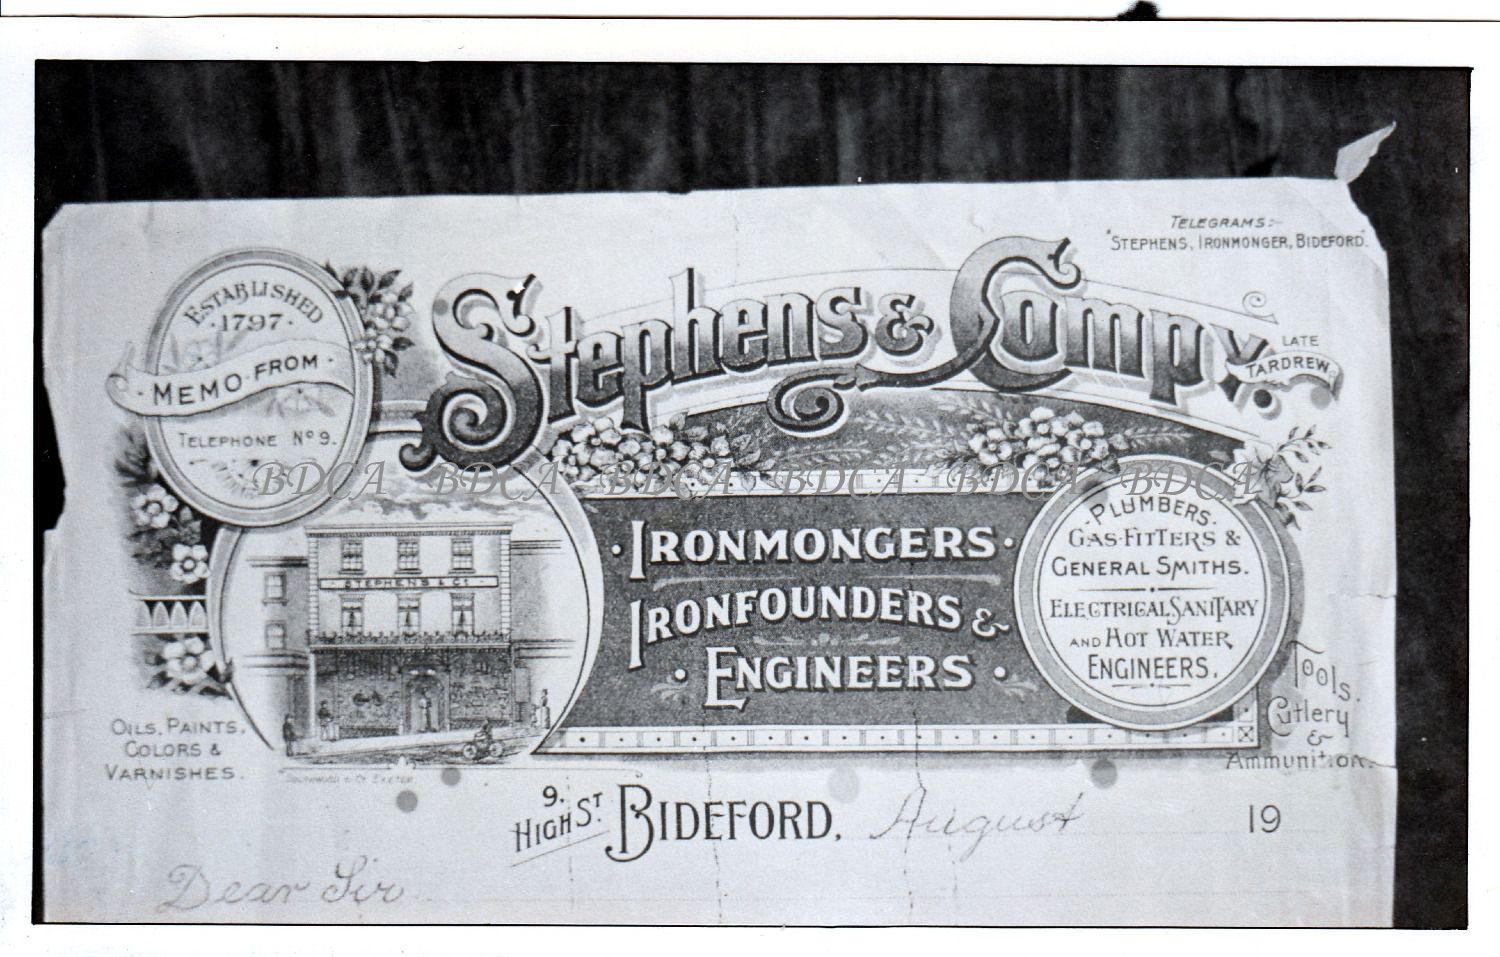 TELEGRAMS:-
"STEPHENS, IRONMONGER, BIDEFORD."
ESTABLISHED
·1797·
MEMO FROM
TELEPHONE Nº 9.
Stephens & Compy.
LATE
TARDREW
BDCA BDCA BDCA BDCA BDCA BDCA
STEPHENS & Co
·IRONMONGERS·
IRONFOUNDERS &
·ENGINEERS·
·PLUMBERS·
GAS-FITTERS &
GENERAL SMITHS.
ELECTRICAL SANITARY
AND HOT WATER
ENGINEERS.
OILS, PAINTS,
COLORS &
VARNISHES.
Tools.
Cutlery
&
Ammunition.
9.
HIGH ST. BIDEFORD, August 19
Dear Sir